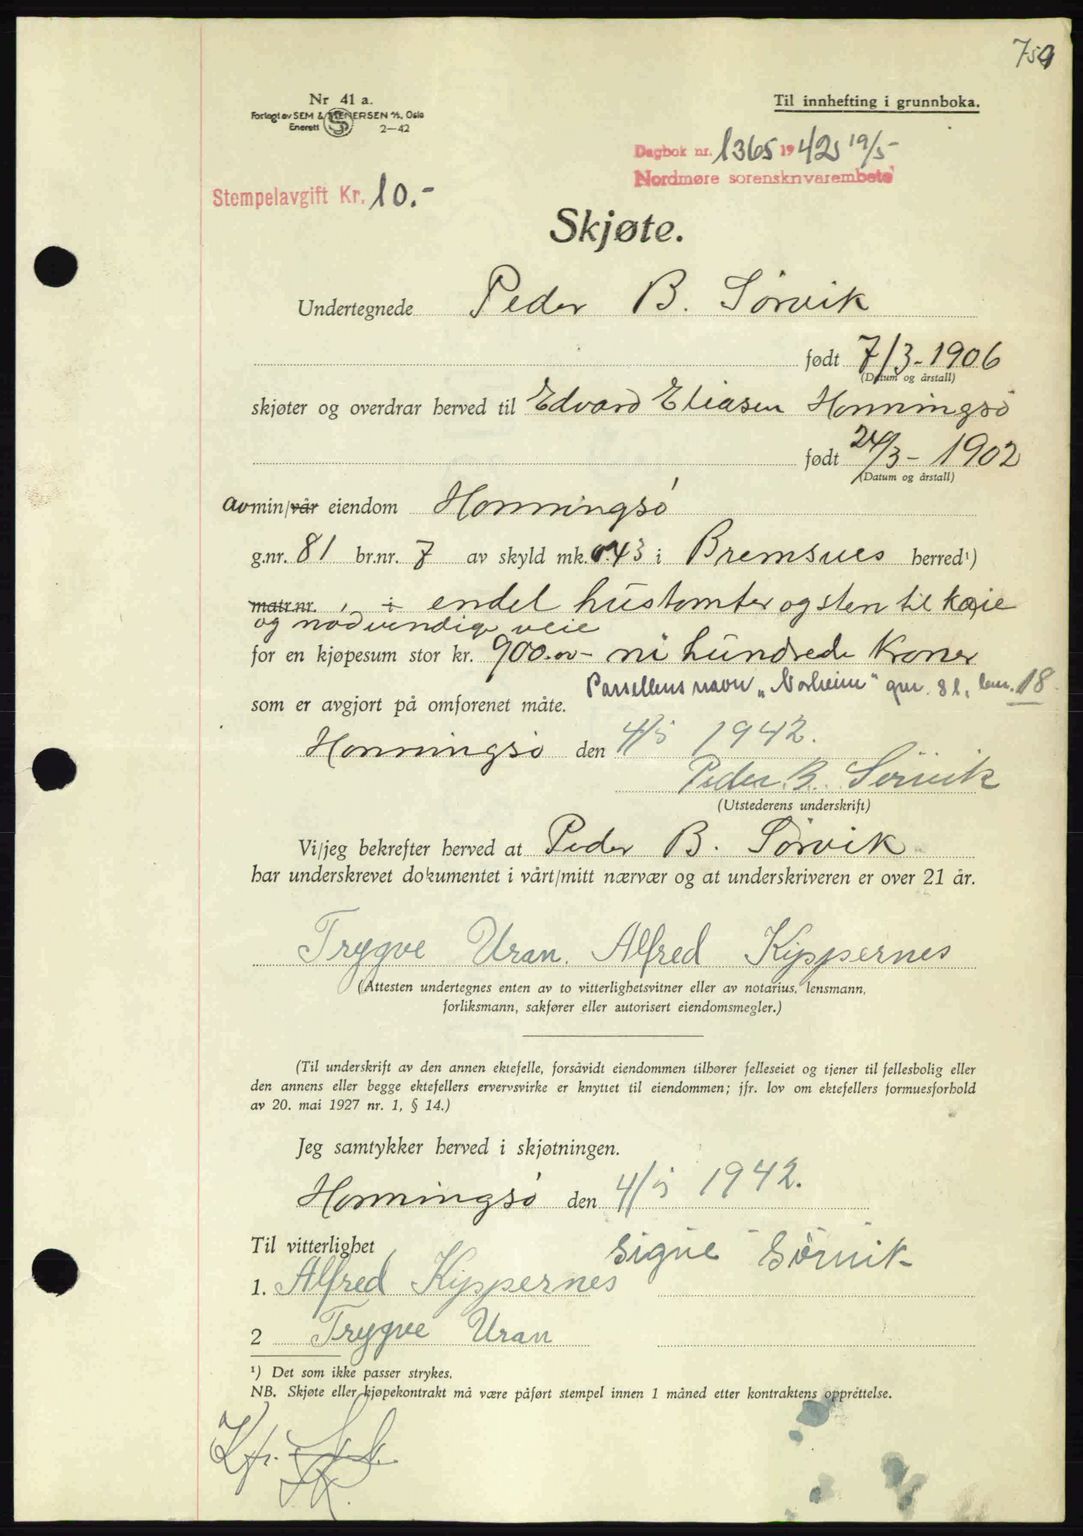 759
Nr 41 a.
Forlagt av SEM & STENERSEN A/S, Oslo
Enerett 2-42
Til innhefting i grunnboka.
Dagbok nr. 1365 1942 19/5-
Nordmøre sorenskrivarembete
Stempelavgift Kr. 10.-
Skjøte.
Undertegnede Peder B. Sörvik
født 7/3-1906
(Datum og årstall)
skjøter og overdrar herved til Edvard Eliasen Honningsö
født 24/3-1902
(Datum og årstall)
av min/vår eiendom Honningsö
g.nr. 81 br.nr. 7 av skyld mk. 0.43 i Bremsnes herred¹)
matr.nr. i endel hustomter og sten til kaie
og nödvendige veie
for en kjøpesum stor kr. 900.00- ni hundrede kroner
Parsellens navn "Norheim" gnr. 81, bnr. 18
som er avgjort på omforenet måte.
Honningsö den 4/5 1942.
Peder B. Sörvik
(Utstederens underskrift)
Vi/jeg bekrefter herved at Peder B. Sörvik
har underskrevet dokumentet i vårt/mitt nærvær og at underskriveren er over 21 år.
Trygve Uran. Alfred Kippernes
(Attesten undertegnes enten av to vitterlighetsvitner eller av notarius, lensmann,
forliksmann, sakfører eller autorisert eiendomsmegler.)
(Til underskrift av den annen ektefelle, forsåvidt eiendommen tilhører felleseiet og tjener til fellesbolig eller
den annens eller begge ektefellers ervervsvirke er knyttet til eiendommen; jfr. lov om ektefellers formuesforhold
av 20. mai 1927 nr. 1, § 14.)
Jeg samtykker herved i skjøtningen.
Honningsö den 4/5 1942.
Til vitterlighet Signe Sörvik
1. Alfred Kippernes
2 Trygve Uran
¹) Det som ikke passer strykes.
NB. Skjøte eller kjøpekontrakt må være påført stempel innen 1 måned etter kontraktens opprettelse.
Kfr.